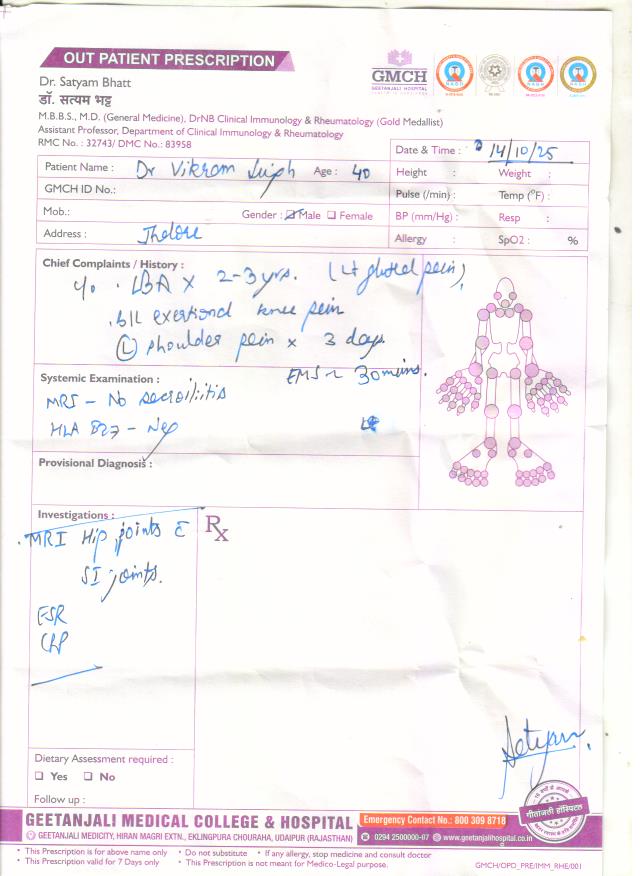 OUT PATIENT PRESCRIPTION
GMCH
GEETANJALI HOSPITAL
Dr. Satyam Bhatt
डॉ. सत्यम भट्ट
M.B.B.S., M.D. (General Medicine), DrNB Clinical Immunology & Rheumatology (Gold Medallist)
Assistant Professor, Department of Clinical Immunology & Rheumatology
RMC No. : 32743/ DMC No.: 83958
Date & Time : 14/10/25
Patient Name : Dr Vikram Singh Age : 40
Height : Weight :
GMCH ID No.:
Pulse (/min) : Temp (°F) :
Mob.: Gender : Male Female
BP (mm/Hg) : Resp :
Address : Jhalore
Allergy : SpO2 : %
Chief Complaints / History :
LBA x 2-3 yrs. (Lt gluteal pain)
B/L exertional knee pain
(L) shoulder pain x 3 days.
EMS ~ 30 mins.
Systemic Examination :
MRI - No sacroiliitis
HLA B27 - Neg
Provisional Diagnosis :
Investigations :
Rx
MRI Hip joints c
SI joints.
ESR
CRP
Dietary Assessment required :
Yes No
Follow up :
गीतांजली हॉस्पिटल
GEETANJALI MEDICAL COLLEGE & HOSPITAL
Emergency Contact No.: 800 309 8718
GEETANJALI MEDICITY, HIRAN MAGRI EXTN., EKLINGPURA CHOURAHA, UDAIPUR (RAJASTHAN)
0294 2500000-07 www.geetanjalihospital.co.in
• This Prescription is for above name only • Do not substitute • If any allergy, stop medicine and consult doctor
• This Prescription valid for 7 Days only • This Prescription is not meant for Medico-Legal purpose.
GMCH/OPD_PRE/IMM_RHE/001